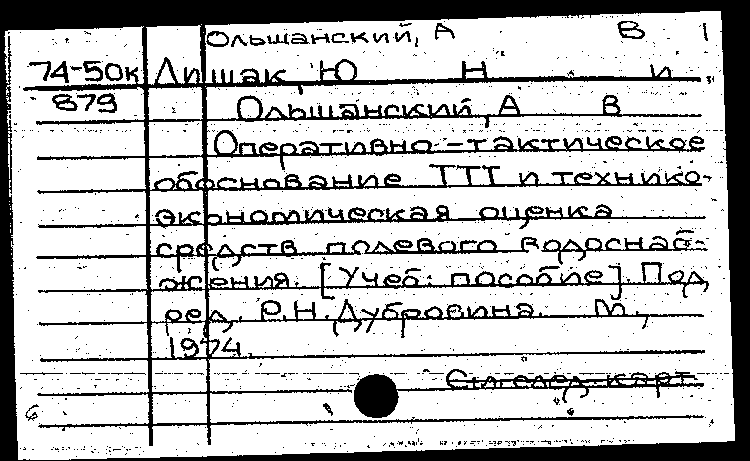 Ольшанский, А В
74-50к Лишак, Ю Н и
879 Ольшанский, А В
Оперативно-тактическое
обоснование ТТТ и технико-
экономическая оценка
средств полевого водоснаб-
жения. [Учеб. пособие]. Под
ред. Р.Н. Дубровина. М.,
1974.
См. след. карт.